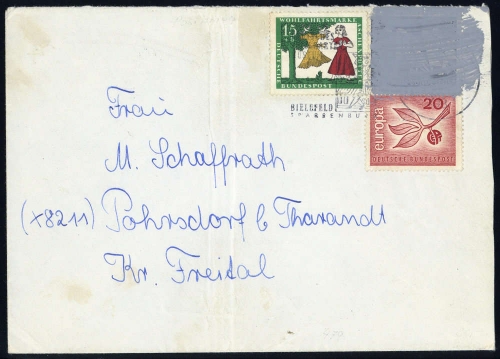 15
+5
WOHLFAHRTSMARKE
ASCHENPUTTEL
DEUTSCHE
BUNDESPOST
BIELEFELD
20
europa
DEUTSCHE BUNDESPOST
Frau
M. Schaffrath
(x8211) Pohrsdorf b Tharandt
Kr. Freital